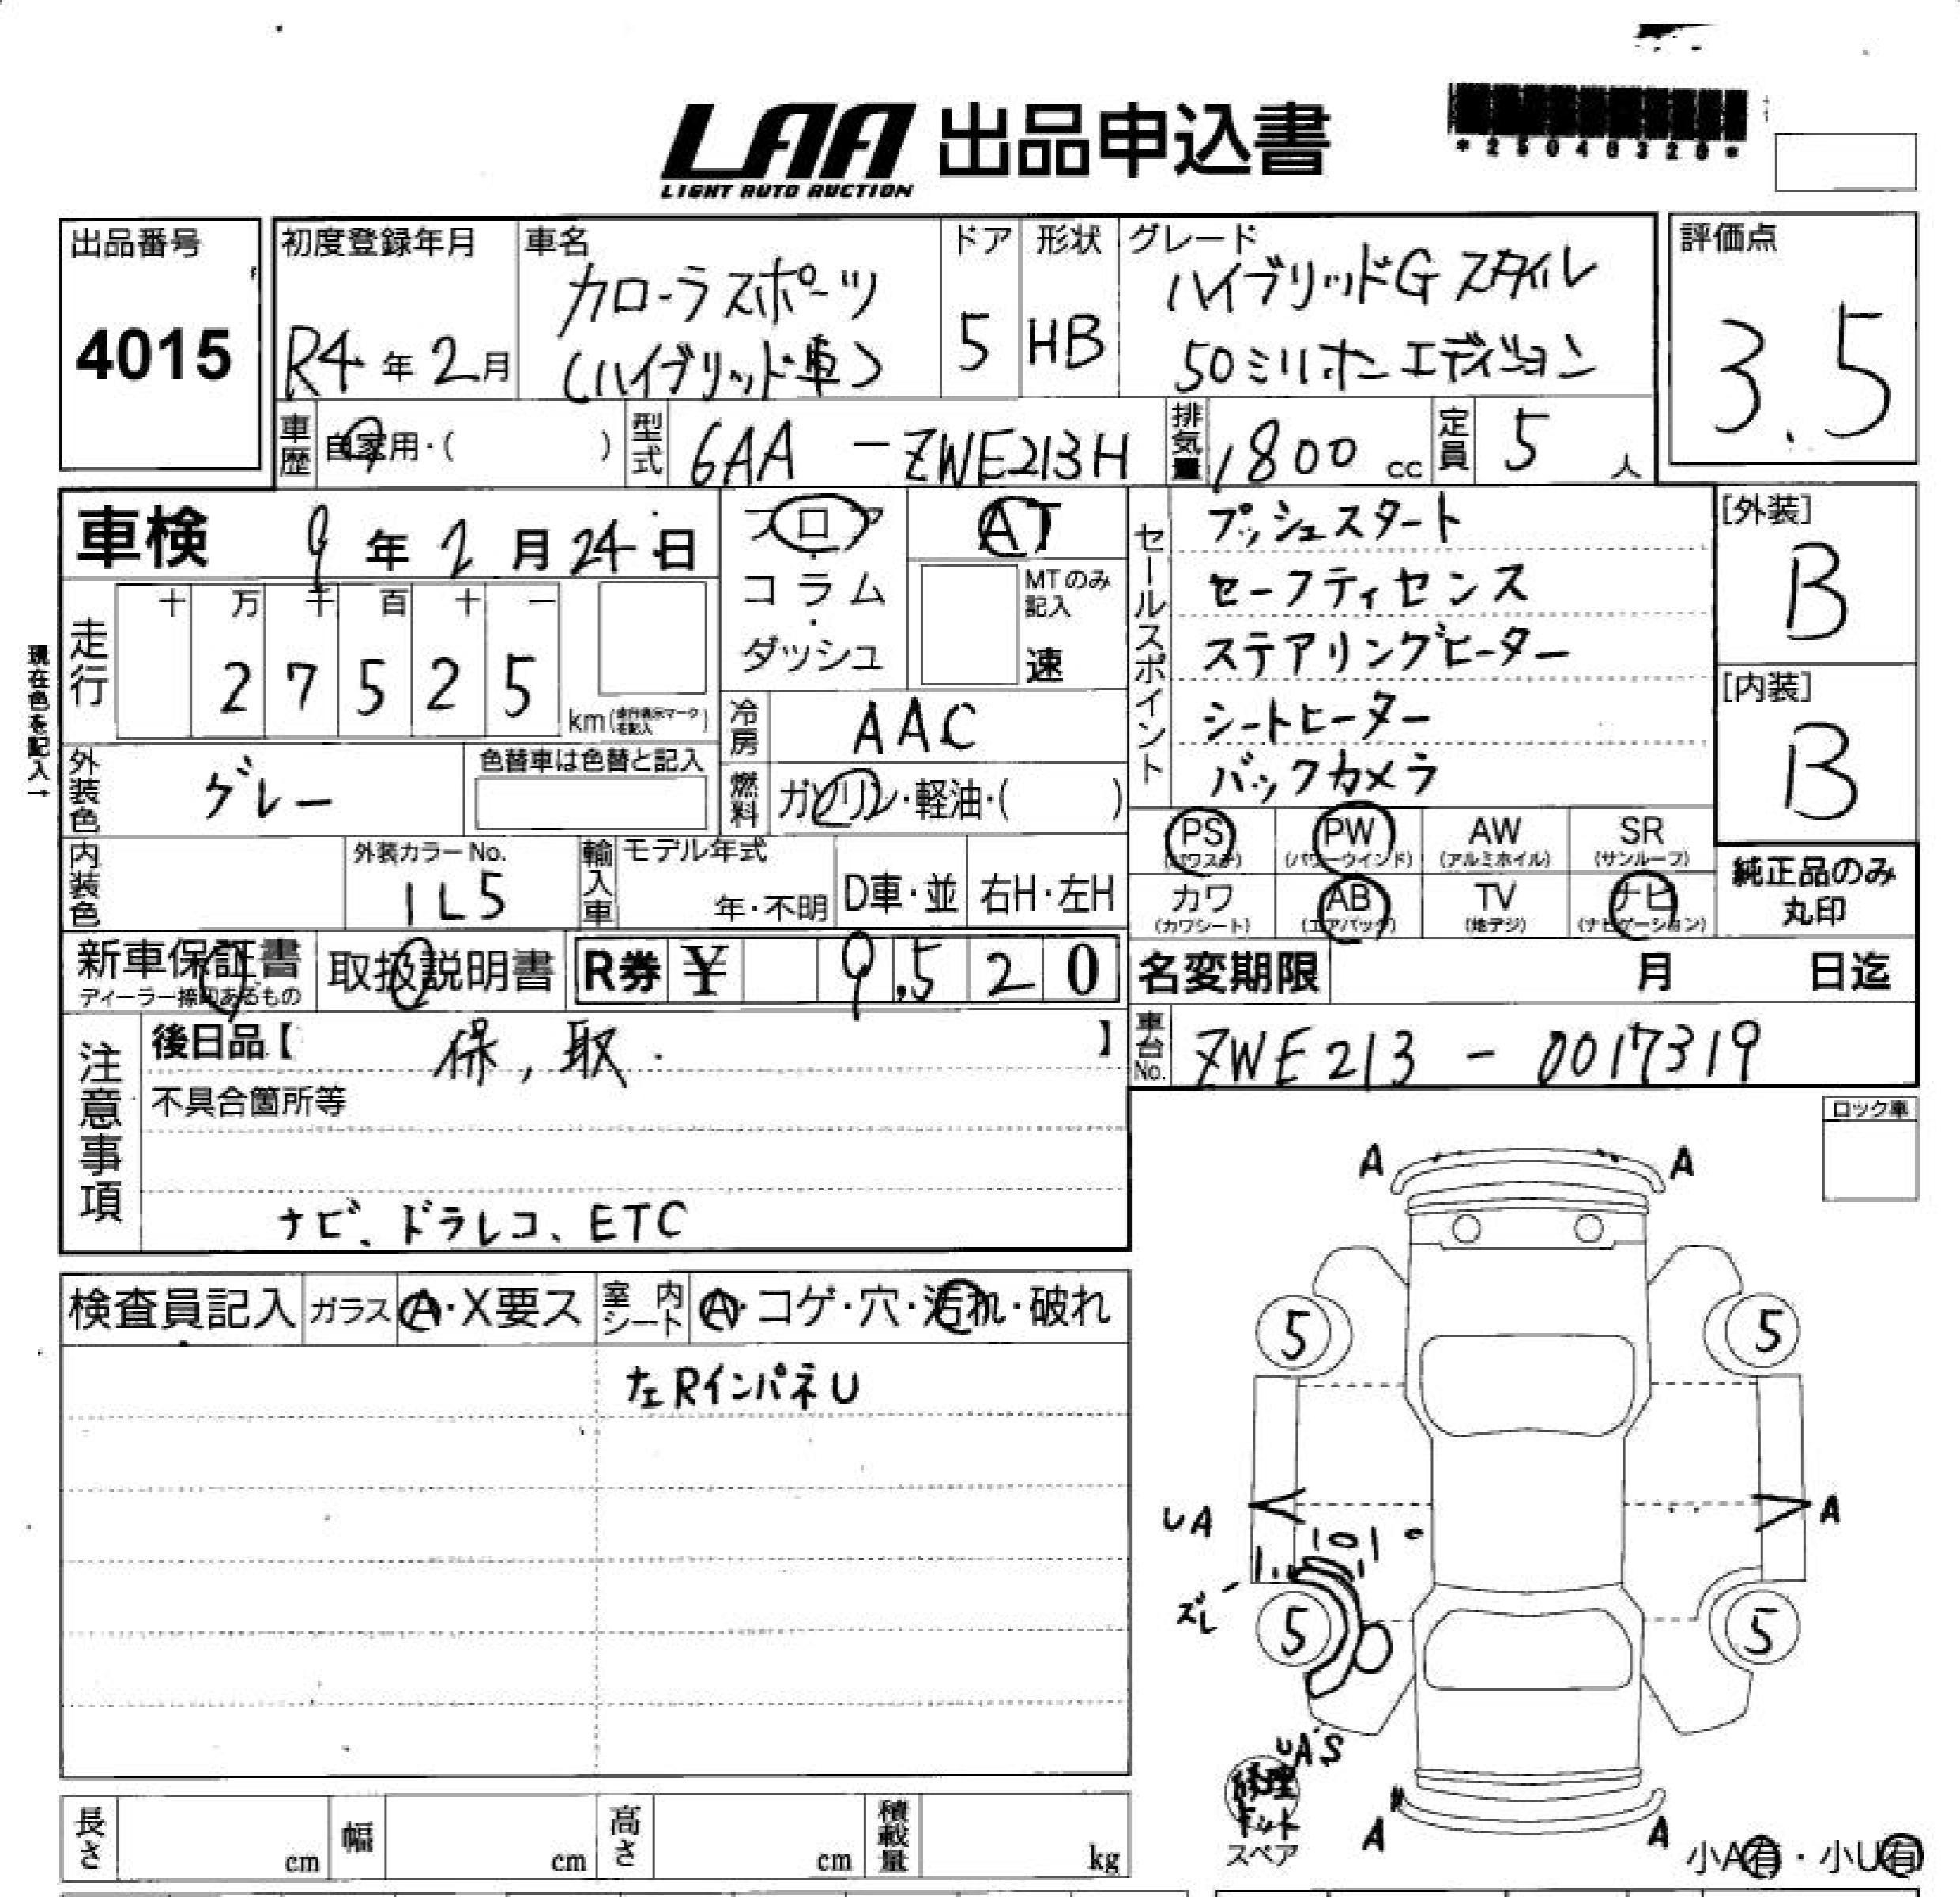 LAA 出品申込書
LIGHT AUTO AUCTION
*25046326*
出品番号
4015
初度登録年月
R4年2月
車名
カローラスポーツ
(ハイブリッド車)
ドア
5
形状
HB
グレード
ハイブリッドG スタイル
50ミリオンエディション
評価点
3.5
車歴
自家用・( )
型式
6AA - ZWE213H
排気量
1800 cc
定員
5 人
車検 9年2月24日
フロア
・
コラム
・
ダッシュ
AT
MTのみ
記入
速
セールスポイント
プッシュスタート
セーフティセンス
ステアリングヒーター
シートヒーター
バックカメラ
[外装]
B
[内装]
B
現在色を記入→
走行
十 万 千 百 十 一
2 7 5 2 5
km(走行表示マークを記入)
冷房
AAC
外装色
グレー
色替車は色替と記入
燃料
ガソリン・軽油・( )
PS
(パワステ)
PW
(パワーウインド)
AW
(アルミホイル)
SR
(サンルーフ)
カワ
(カワシート)
AB
(エアバック)
TV
(地デジ)
ナビ
(ナビゲーション)
純正品のみ
丸印
内装色
外装カラーNo.
1L5
輸入車
モデル年式
年・不明
D車・並
右H・左H
新車保証書
ディーラー捺印あるもの
取扱説明書
R券 ¥ 9,520
名変期限 月 日迄
注意事項
後日品【 保,取. 】
車台No.
ZWE213 - 0017319
不具合箇所等
ナビ、ドラレコ、ETC
ロック車
検査員記入
ガラス
A・X要ス
室内シート
A・コゲ・穴・汚れ・破れ
左RインパネU
A A
5 5
UA A
ズレ
5 5
UA'S
修理
キット
スペア
A A
小A有・小U有
長さ cm
幅 cm
高さ cm
積載量 kg